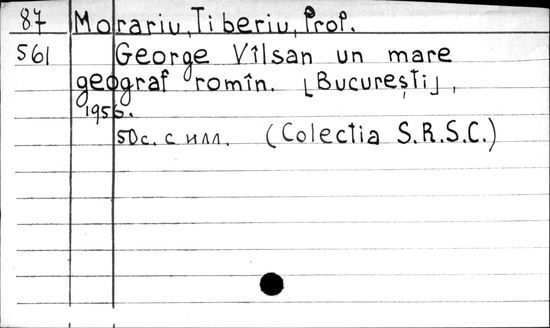 87 Morariu, Tiberiu, Prof.
561 George Vîlsan un mare
geograf romîn. [București],
1956.
50c. с илл. (Colectia S.R.S.C.)